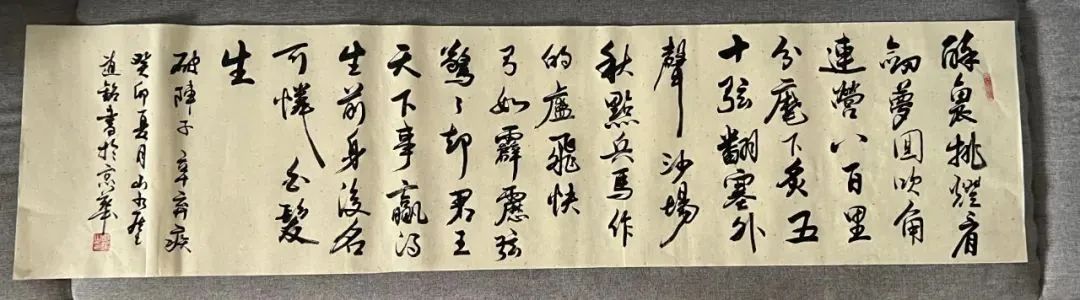 醉裏挑燈看
劍夢回吹角
連營八百里
分麾下炙五
十弦翻塞外
聲 沙場
秋點兵馬作
的盧飛快
弓如霹靂弦
驚了却君王
天下事贏得
生前身後名
可憐白髮
生
破陣子 辛弃疾
癸卯夏月山水
銘書於京華